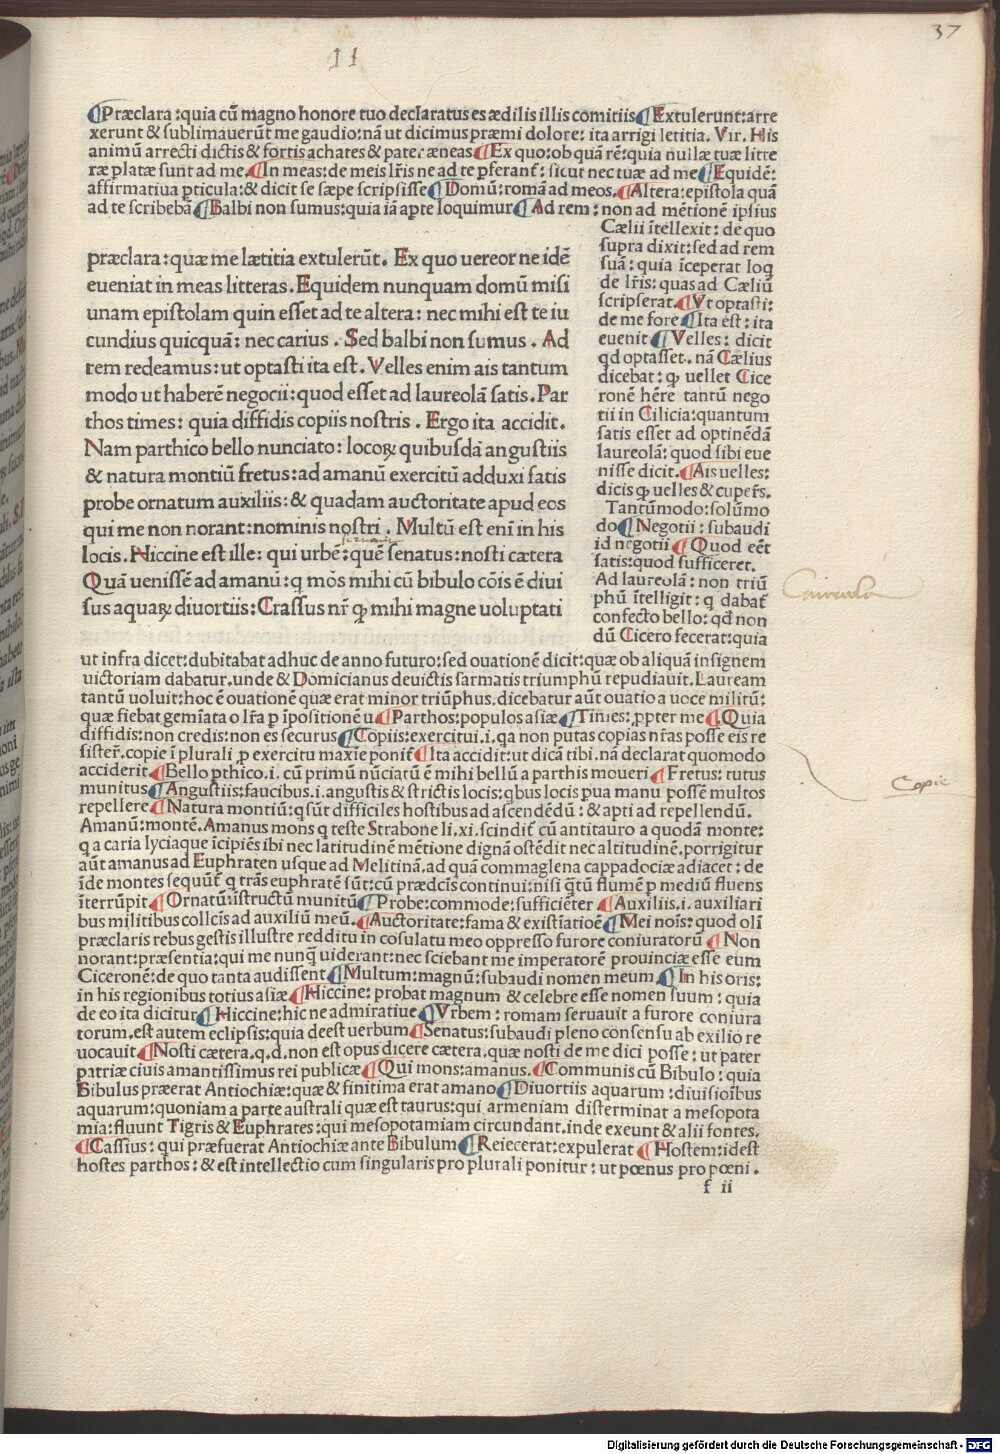 37
11
¶Præclara:quia cũ magno honore tuo declaratus es ædilis illis comitiis¶Extulerunt:arre
xerunt & sublimauerũt me gaudio:nã ut dicimus præmi dolore: ita arrigi letitia. Vir. His
animũ arrecti dictis & fortis achates & pater æneas¶Ex quo:ob quã rẽ:quia nullæ tuæ litte
ræ platæ sunt ad me¶In meas:de meis lr̃is ne ad te pferant̃: sicut nec tuæ ad me¶Equidẽ:
affirmatiua pticula:& dicit se sæpe scripsisse¶Domũ:romã ad meos.¶Altera:epistola quã
ad te scribebã¶Balbi non sumus:quia iã apte loquimur¶Ad rem:non ad mẽtionẽ ipsius
Cælii ĩtellexit: de quo
supra dixit:sed ad rem
suã: quia ĩceperat loq
de lr̃is: quas ad Cæliũ
scripserat.¶Vt optasti:
de me fore¶Ita est: ita
euenit¶Velles: dicit
qd optasset. nã Cælius
dicebat: ꝙ uellet Cice
ronẽ hẽre tantũ nego
tii in Cilicia:quantum
satis esset ad optinẽdã
laureolã: quod sibi eue
nisse dicit.¶Ais uelles:
dicis ꝙ uelles & cuper̃s.
Tantũmodo:solũmo
do¶Negotii: subaudi
id negotii¶Quod eẽt
satis:quod sufficeret.
Ad laureolã: non triũ
phũ ĩtelligit: q dabat̃
confecto bello: qđ non
dũ Cicero fecerat:quia
præclara:quæ me lætitia extulerũt. Ex quo uereor ne idẽ
eueniat in meas litteras. Equidem nunquam domũ misi
unam epistolam quin esset ad te altera: nec mihi est te iu
cundius quicquã: nec carius. Sed balbi non sumus. Ad
rem redeamus:ut optasti ita est. Velles enim ais tantum
modo ut haberẽ negocii:quod esset ad laureolã satis. Par
thos times: quia diffidis copiis nostris. Ergo ita accidit.
Nam parthico bello nunciato: locoꝝ quibusdã angustiis
& natura montiũ fretus:ad amanũ exercitũ adduxi satis
probe ornatum auxiliis:& quadam auctoritate apud eos
qui me non norant:nominis nostri. Multũ est enĩ in his
locis. Hiccine est ille: qui urbẽ: quẽ senatus:nosti cætera
Quã uenissẽ ad amanũ:q mõs mihi cũ bibulo cõis ẽ diui
sus aquaꝝ diuortiis:Crassus nr̃ ꝙ mihi magne uoluptati
ut infra dicet:dubitabat adhuc de anno futuro:sed ouationẽ dicit:quæ ob aliquã insignem
uictoriam dabatur.unde & Domicianus deuictis sarmatis triumphũ repudiauit.Lauream
tantũ uoluit:hoc ẽ ouationẽ quæ erat minor triũphus.dicebatur aũt ouatio a uoce militũ:
quæ fiebat gemĩata o lr̃a p ĩpositionẽ u¶Parthos:populos asiæ¶Times:ꝓpter me¶Quia
diffidis:non credis:non es securus¶Copiis:exercitui.i.qa non putas copias nr̃as posse eis re
sister̃.copie ĩ plurali ꝓ exercitu maxĩe ponit̃¶Ita accidit:ut dicã tibi.nã declarat quomodo
acciderit¶Bello pthico.i. cũ primũ nũciatũ ẽ mihi bellũ a parthis moueri¶Fretus: tutus
munitus¶Angustiis:faucibus.i.angustis & strictis locis:qbus locis pua manu possẽ multos
repellere¶Natura montiũ:q sũt difficiles hostibus ad ascendẽdũ: & apti ad repellendũ.
Amanũ:montẽ.Amanus mons q teste Strabone li.xi.scindit̃ cũ antitauro a quodã monte:
q a caria lyciaque ĩcipiẽs ibi nec latitudinẽ mẽtione dignã ostẽdit nec altitudinẽ.porrigitur
aũt amanus ad Euphraten usque ad Melitinã.ad quã commaglena cappadociæ adiacet: de
ĩde montes sequũt̃ q trãs euphratẽ sũt:cũ prædcĩs continui:nisi q̃tũ flumẽ p mediũ fluens
ĩterrũpit¶Ornatũ:ĩstructũ munitũ¶Probe:commode:sufficiẽter¶Auxiliis.i.auxiliari
bus militibus collcĩs ad auxiliũ meũ.¶Auctoritate:fama & existĩatioẽ¶Mei noĩs: quod olĩ
præclaris rebus gestis illustre redditũ in cõsulatu meo oppresso furore coniuratorũ¶Non
norant:præsentia:qui me nunq̃ uiderant:nec sciebant me imperatorẽ prouinciæ esse eum
Ciceronẽ:de quo tanta audissent¶Multum:magnũ:subaudi nomen meum¶In his oris:
in his regionibus totius asiæ¶Hiccine: probat magnum & celebre esse nomen suum: quia
de eo ita dicitur¶Hiccine:hic ne admiratiue¶Vrbem: romam seruauit a furore coniura
torum.est autem eclipsis:quia deest uerbum¶Senatus:subaudi pleno consensu ab exilio re
uocauit¶Nosti cætera.q.d.non est opus dicere cætera.quæ nosti de me dici posse: ut pater
patriæ ciuis amantissimus rei publicæ¶Qui mons:amanus.¶Communis cũ Bibulo: quia
Bibulus præerat Antiochiæ:quæ & finitima erat amano¶Diuortiis aquarum:diuisioĩbus
aquarum:quoniam a parte australi quæ est taurus:qui armeniam disterminat a mesopota
mia:fluunt Tigris & Euphrates:qui mesopotamiam circundant.inde exeunt & alii fontes.
¶Cassius: qui præfuerat Antiochiæ ante Bibulum¶Reiecerat:expulerat¶Hostem:idest
hostes parthos:& est intellectio cum singularis pro plurali ponitur: ut pœnus pro pœni.
f ii
Copie
Digitalisierung gefördert durch die Deutsche Forschungsgemeinschaft - DFG